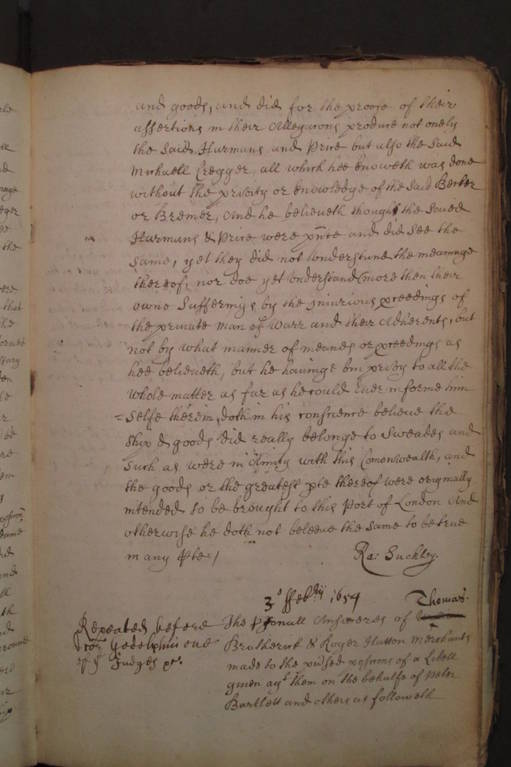 and goods, and did for the proofe of their
assertions in their Allegations produce not onely
the said Harmans and Prise but also the said
Michaell Cregger, all which hee knoweth was done
without the privity or knowledge of the said Becker
or Bremer, And he beleiveth though the saved
Harmans & Prise were pnte and did see the
same, yet they did not understand the meaninge
thereof, nor doe yet understand more then their
owne sufferings by the injurious proceedings of
the private man of warr and their Adherents, but
not by what manner of meanes or proceedings as
hee beleiveth, but he havinge bin privy to all the
whole matter as far as he could ever informe him
=selfe therein, doth in his conscience beleive the
ship & goods did really belonge to Sweades and
such as were in Amity with this Comonwealth, and
the goods or the greatest pte thereof were originally
intended to be brought to this Port of London And
otherwise he doth not beleeve the same to be true
in any pte/
Ra: Suckley.
3o ffebrii 1654
Thomas
Repeated before
Godolphin one
of ye Judges
The psonall Answeres of
Brotherick & Roger Hatton Merchants
made to the of a Libell
given agt them on the behalfe of
Bartlett and others as followeth